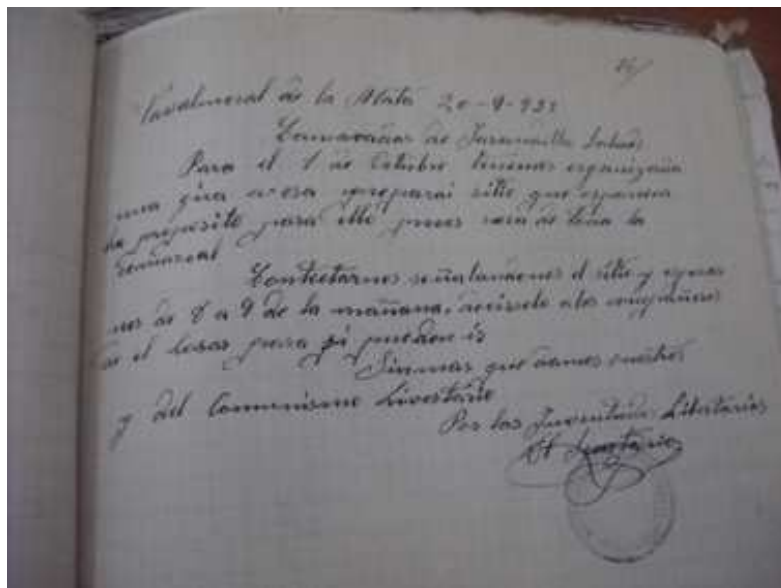 Navalmoral de la Mata 20-9-933
Camaradas de Jarandilla Salud
Para el 1 de Octubre tenemos organizada
una gira a esa preparai sitio que
de proposito para ello pues sera de toda la
Contestarnos señalandonos el sitio y
nos de 8 a 9 de la mañana, decirselo a los compañeros
de el losar para si pueden ir
Sin mas que damos vuestros
y del Comunismo Livertario
Por las Juventudes Libertarias
El Secretario